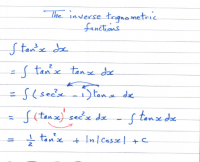 The inverse trignometric
functions
∫ tan³x dx
= ∫ tan²x tanx dx
= ∫ (sec²x - 1) tanx dx
= ∫ (tanx)¹ sec²x dx - ∫ tanx dx
= 1/2 tan²x + ln|cosx| + C